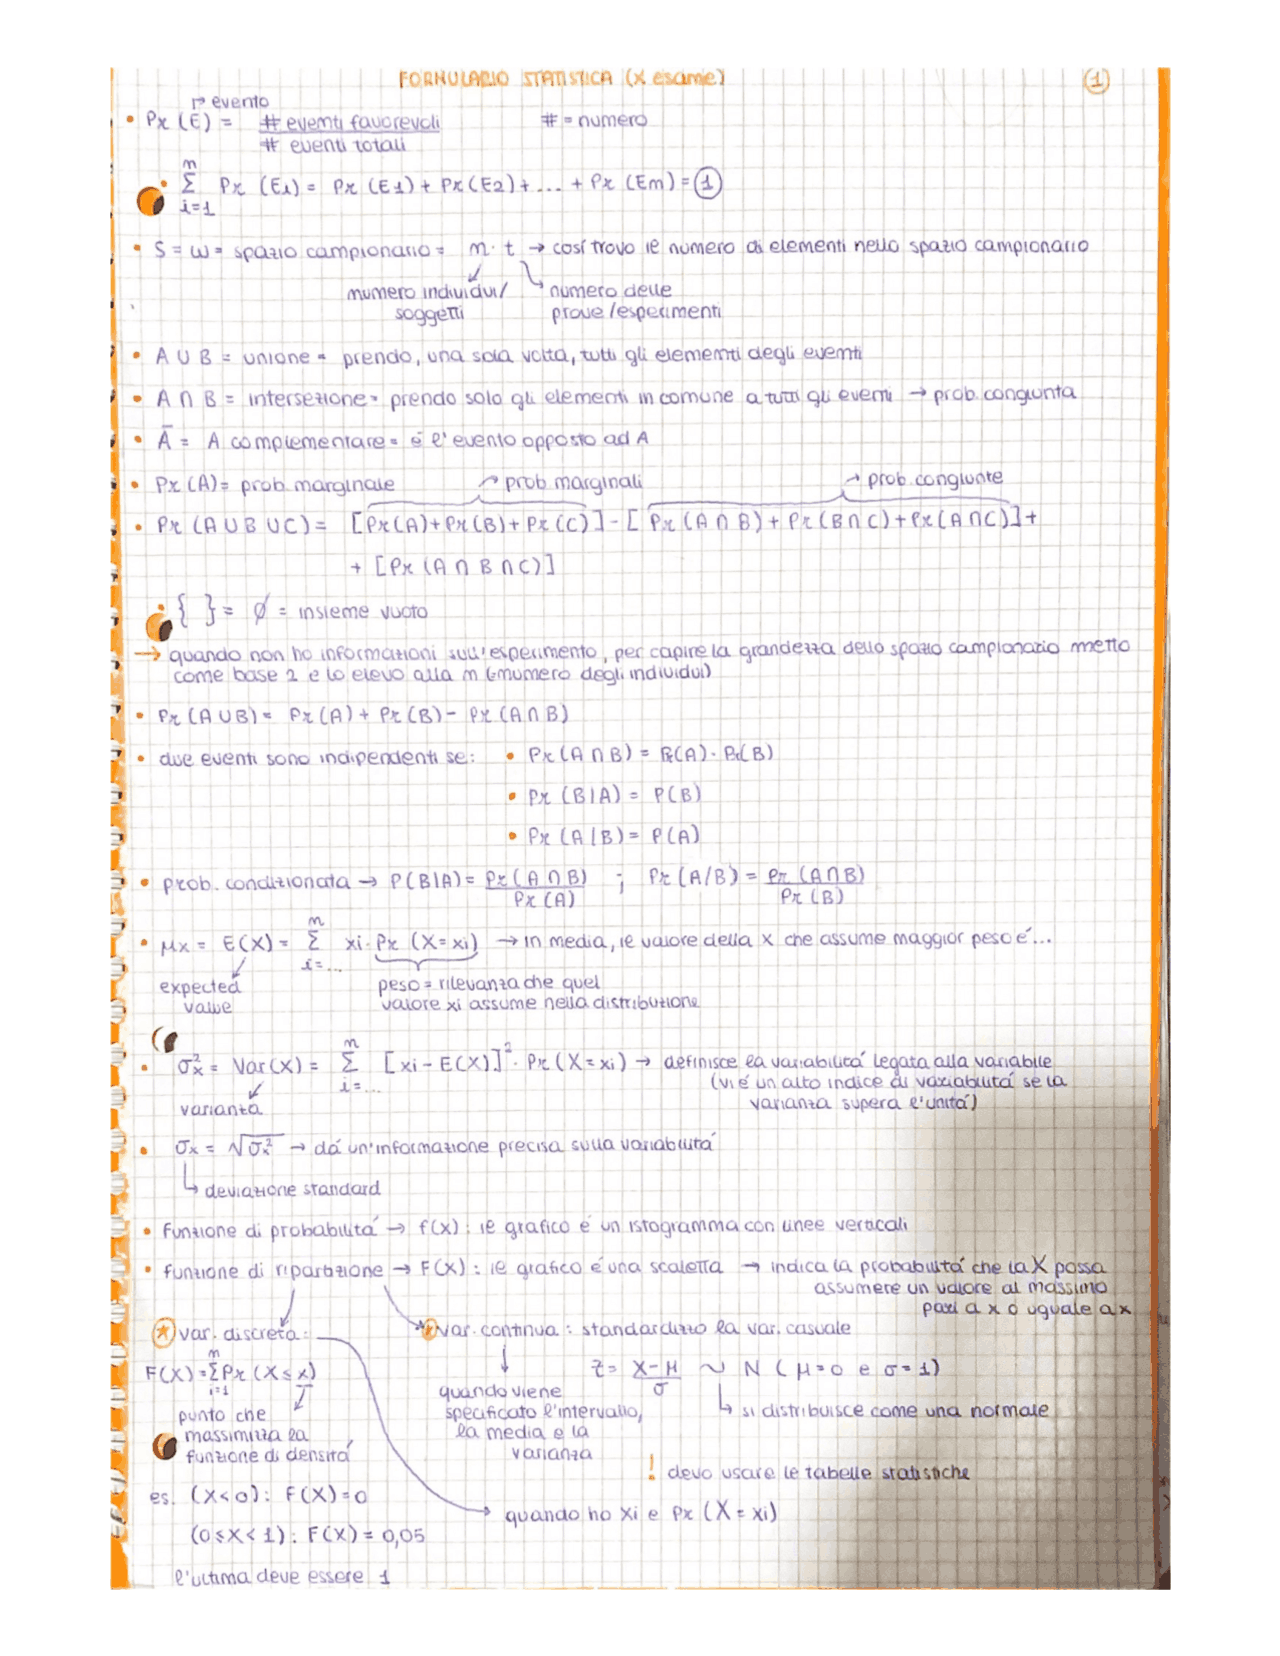 FORMULARIO STATISTICA (x esame)
1
↱ evento
• Pr (E) = # eventi favorevoli    # = numero
# eventi totali
• n
Σ Pr (Ei) = Pr (E1) + Pr (E2) + ... + Pr (En) = 1
i=1
• S = ω = spazio campionario = n · t → così trovo il numero di elementi nello spazio campionario
numero individui/ numero delle
soggetti prove/esperimenti
• A ∪ B = unione = prendo, una sola volta, tutti gli elementi degli eventi
• A ∩ B = intersezione = prendo solo gli elementi in comune a tutti gli eventi → prob. congiunta
• Ā = A complementare = é l'evento opposto ad A
• Pr (A) = prob. marginale → prob. marginali → prob. congiunte
• Pr (A ∪ B ∪ C) = [Pr(A) + Pr(B) + Pr(C)] - [Pr (A ∩ B) + Pr (B ∩ C) + Pr (A ∩ C)] +
+ [Pr (A ∩ B ∩ C)]
• { } = ∅ = insieme vuoto
→ quando non ho informazioni sull'esperimento, per capire la grandezza dello spazio campionario metto
come base 2 e lo elevo alla n (=numero degli individui)
• Pr (A ∪ B) = Pr (A) + Pr (B) - Pr (A ∩ B)
• due eventi sono indipendenti se: • Pr (A ∩ B) = Pr(A) · Pr(B)
• Pr (B|A) = P(B)
• Pr (A|B) = P(A)
• prob. condizionata → P(B|A) = Pr (A ∩ B) ; Pr (A/B) = Pr (A ∩ B)
Pr (A) Pr (B)
n
• μx = E(X) = Σ xi · Pr (X = xi) → in media, il valore della x che assume maggior peso é...
i=...
expected peso = rilevanza che quel
value valore xi assume nella distribuzione
n
• σ²x = Var (X) = Σ [xi - E(X)]² · Pr (X = xi) → definisce la variabilitá legata alla variabile
i=... (vi é un alto indice di variabilitá se la
varianza varianza supera l'unitá)
• σx = √σ²x → dá un'informazione precisa sulla variabilitá
↳ deviazione standard
• funzione di probabilitá → f(x) : il grafico é un istogramma con linee verticali
• funzione di ripartizione → F(X) : il grafico é una scaletta → indica la probabilitá che la X possa
assumere un valore al massimo
pari a x o uguale a x
* var. discreta: * var. continua : standardizzo la var. casuale
n
F(X) = Σ Pr (X ≤ x) z = X - μ ~ N ( μ = 0 e σ = 1)
i=1 σ
quando viene
punto che specificato l'intervallo, ↳ si distribuisce come una normale
massimizza la la media e la
funzione di densitá varianza
! devo usare le tabelle statistiche
es. (X < 0) : F(X) = 0
quando ho xi e Pr (X = xi)
(0 ≤ X < 1) : F(X) = 0,05
l'ultima deve essere 1